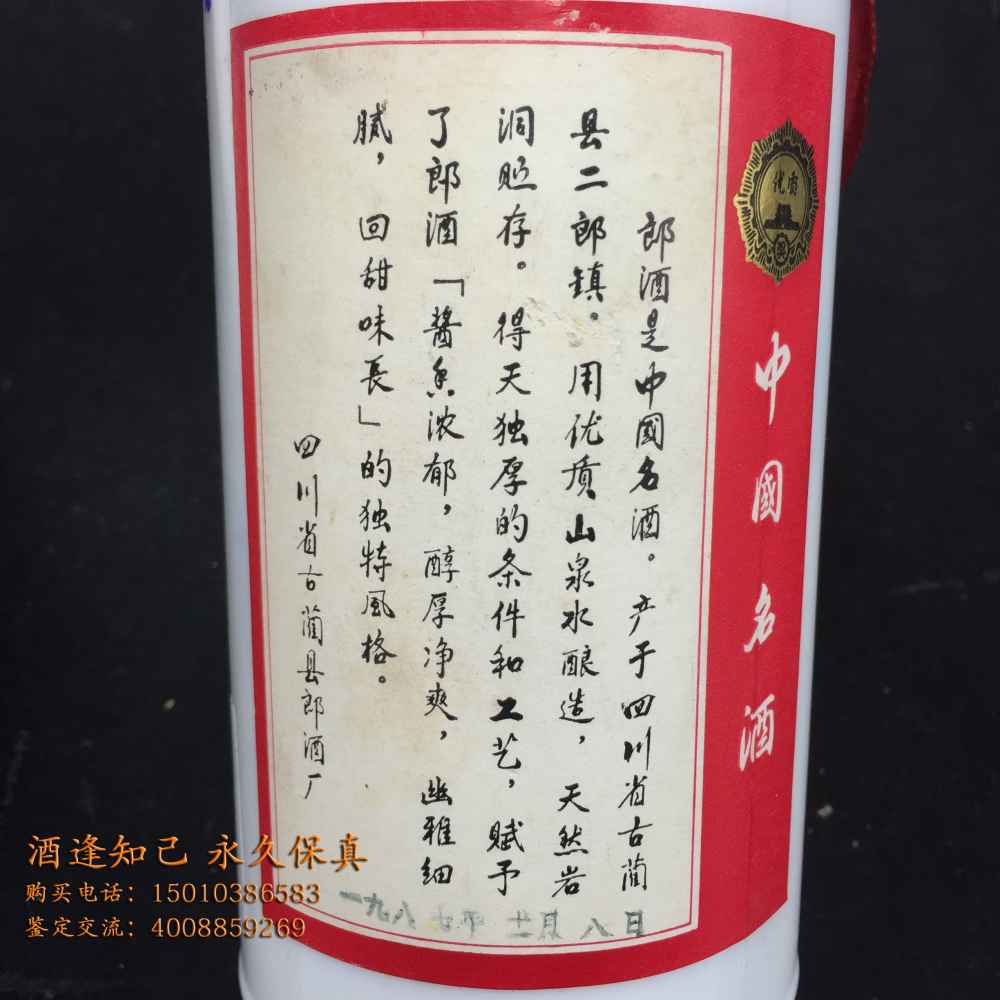 郎酒是中國名酒。产于四川省古蔺
县二郎镇。用优质山泉水酿造，天然岩
洞贮存。得天独厚的条件和工艺，赋予
了郎酒「醬香浓郁，醇厚净爽，幽雅细
腻，回甜味長」的独特風格。
四川省古蔺县郎酒厂
中國名酒
一九八七年十二月八日
酒逢知己 永久保真
购买电话：15010386583
鉴定交流：4008859269